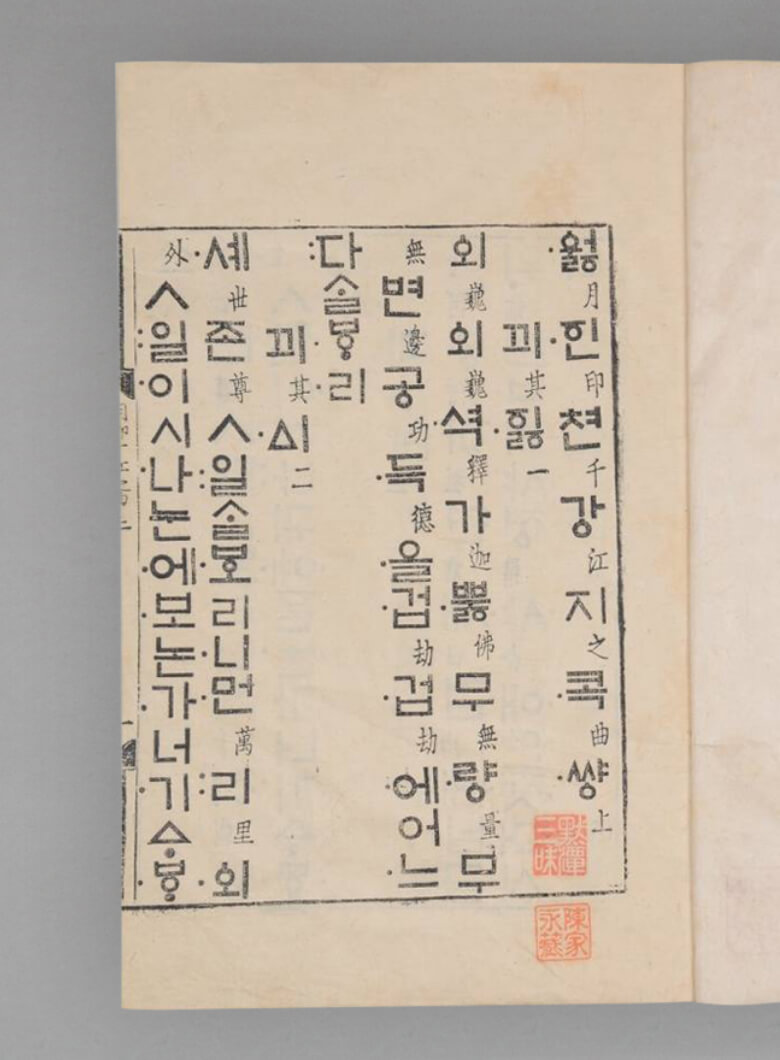 ·ᅌᅯᇙ月·ᅙᅵᆫ印쳔千강江지之·콕曲·썅上
끠其·ᅙᅵᇙ一
외巍외巍·셕釋가迦·뿌ᇙ佛무無·량量무
無변邊공功·득德·을·겁劫·겁劫·에어느
:다ᄉᆞᆯᄫᆞ·리
끠其·ᅀᅵ二
·셰世존尊ㅅ:일ᄉᆞᆯ·ᄫᅩ리·니·먼萬:리里·외
外ㅅ:일·이시·나·눈·에·보논·가너·기ᅀᆞ·ᄫᆞ
陳家永藏